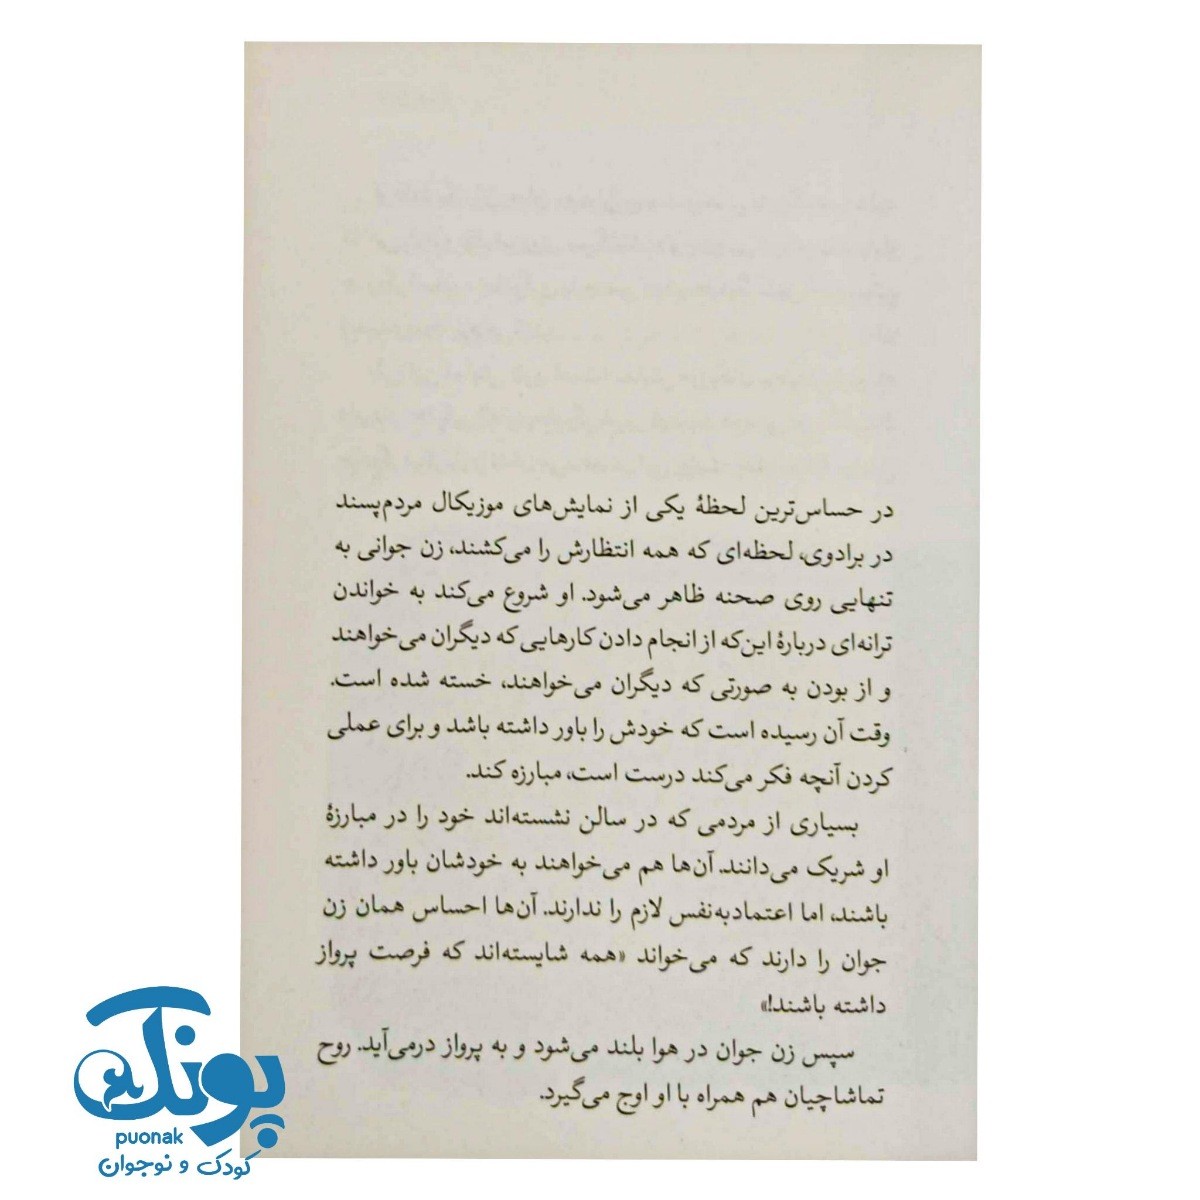 در حساس‌ترین لحظهٔ یکی از نمایش‌های موزیکال مردم‌پسند
در برادوی، لحظه‌ای که همه انتظارش را می‌کشند، زن جوانی به
تنهایی روی صحنه ظاهر می‌شود. او شروع می‌کند به خواندن
ترانه‌ای دربارهٔ این‌که از انجام دادن کارهایی که دیگران می‌خواهند
و از بودن به صورتی که دیگران می‌خواهند، خسته شده است.
وقت آن رسیده است که خودش را باور داشته باشد و برای عملی
کردن آنچه فکر می‌کند درست است، مبارزه کند.
بسیاری از مردمی که در سالن نشسته‌اند خود را در مبارزهٔ
او شریک می‌دانند. آن‌ها هم می‌خواهند به خودشان باور داشته
باشند، اما اعتمادبه‌نفس لازم را ندارند. آن‌ها احساس همان زن
جوان را دارند که می‌خواند «همه شایسته‌اند که فرصت پرواز
داشته باشند!»
سپس زن جوان در هوا بلند می‌شود و به پرواز درمی‌آید. روح
تماشاچیان هم همراه با او اوج می‌گیرد.
پونک
puonak
کودک و نوجوان